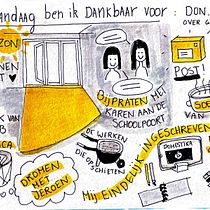 ANDAAG BEN IK DANKBAAR VOOR : DON
OVER G
ZON
NEN
POST!
BIJPRATEN MET
KAREN AAN DE
SCHOOLPOORT
SOE
VAN
K
B
ICA
DE WERKEN
DIE OPSCHIETEN
DROMEN
MET
JEROEN
MIJ EINDELIJK INGESCHREVEN
DOMESTIKA